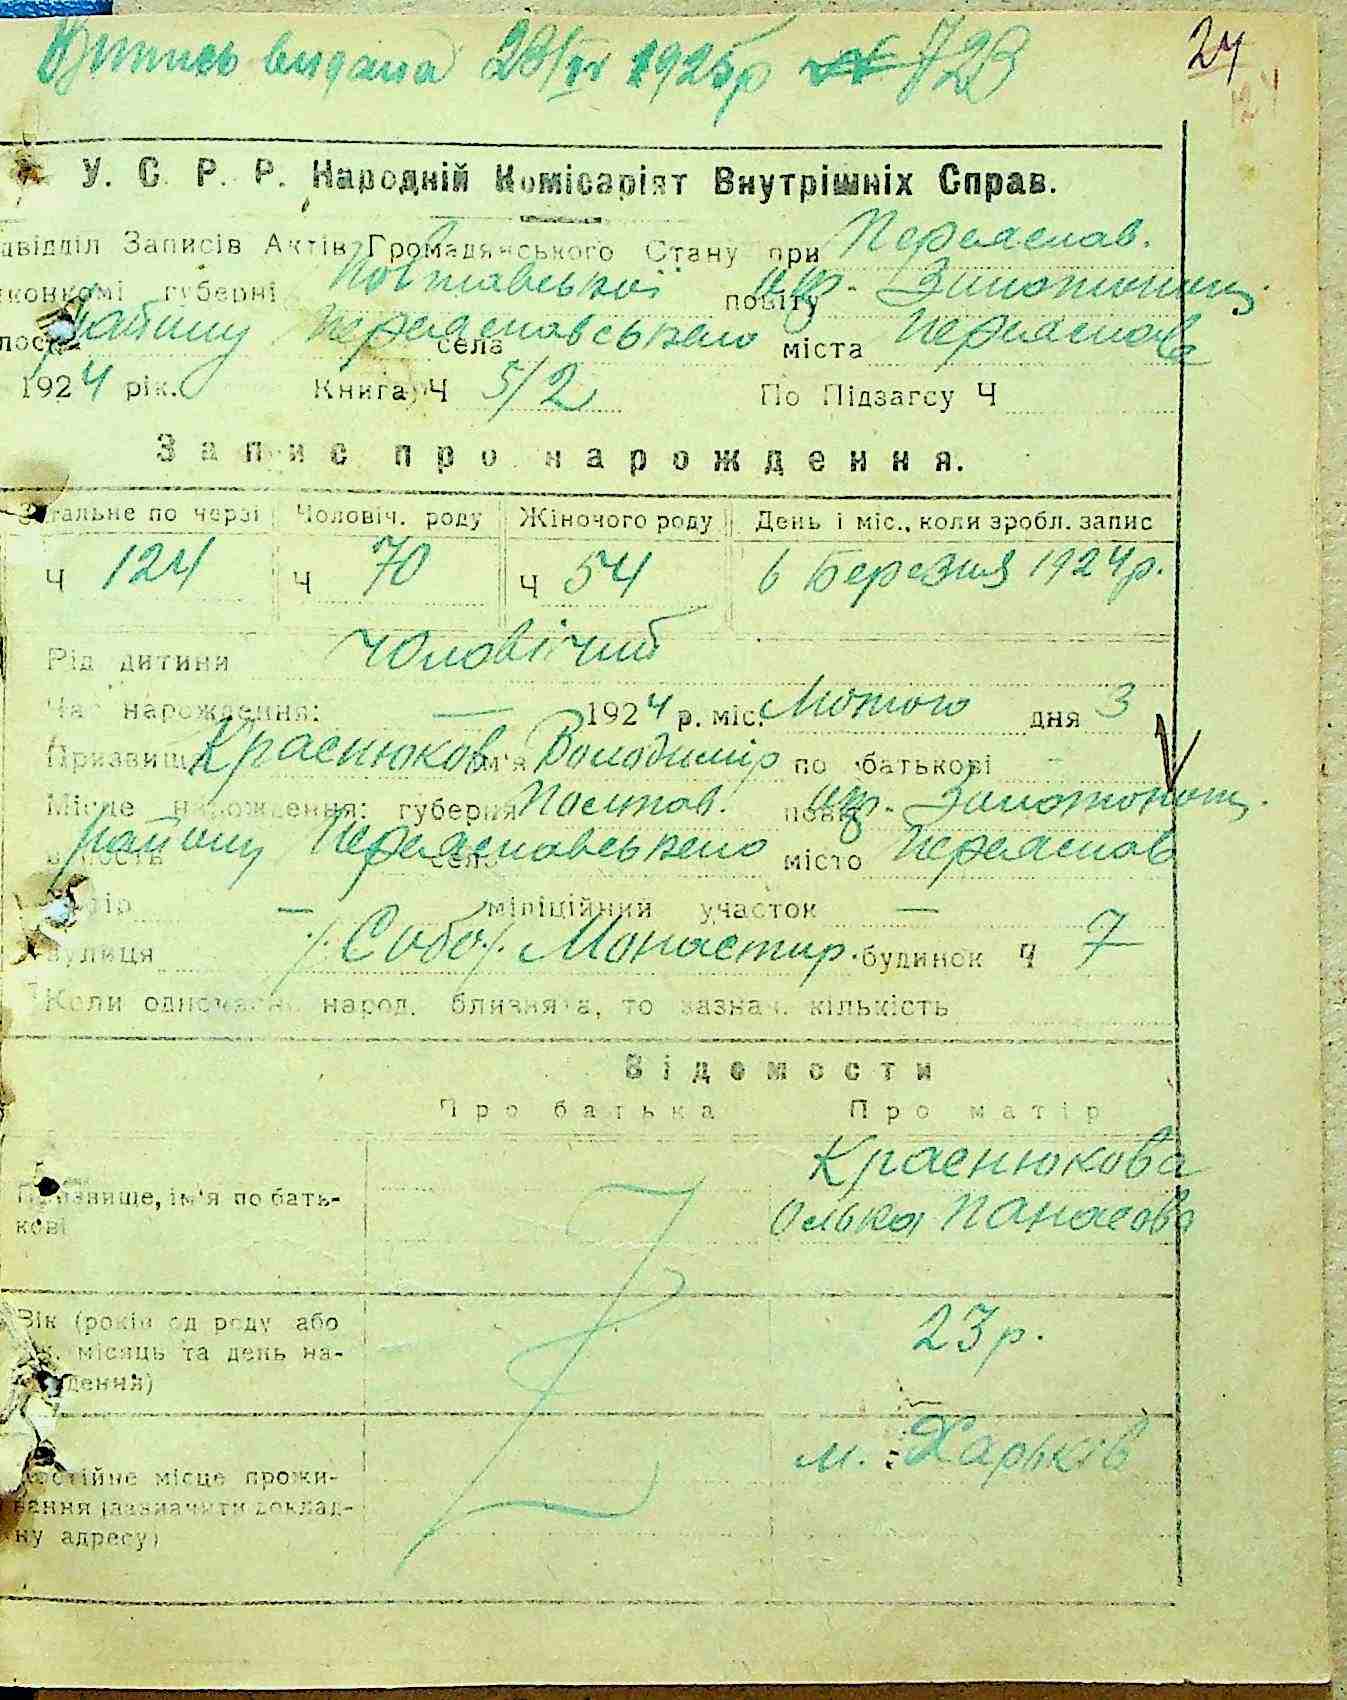 Випись видана 28/IV 1925р № 723
24
124
У. С. Р. Р. Народній Комісаріят Внутрішніх Справ.
двідділ Записів Актів Громадянського Стану при Переяслав.
конкомі губерні Полтавської окр. повіту Золотоношу.
району Переяславського села міста Переяслова
1924 рік. Книга Ч 5/2 По Підзагсу Ч
Запис про народження.
Загальне по черзі Чоловіч. роду Жіночого роду День і міс., коли зробл. запис
Ч 124 Ч 70 Ч 54 6 Березня 1924р.
Рід дитини чоловічий
Час народження: — 1924 р. міс. Лютого дня 3
Призвище Краснюков ім'я Володимір по батькові -
Місце народження: губерня Полтав. окр. повіт Золотоношу.
волость району Переяславського село місто Переяслов
— міліційний участок —
вулиця /. Собо/. Монастир. будинок Ч 7
Коли одночасно народ. близнята, то зазнач. кількість
Відомости
Про батька Про матір
Призвище, ім'я по бать-
кові
Краснюкова
Олька Панасова
Вік (років од роду або
рік, місяць та день на-
родження)
23 р.
Постійне місце прожи-
вання (зазначити доклад-
ну адресу)
м. Харьків